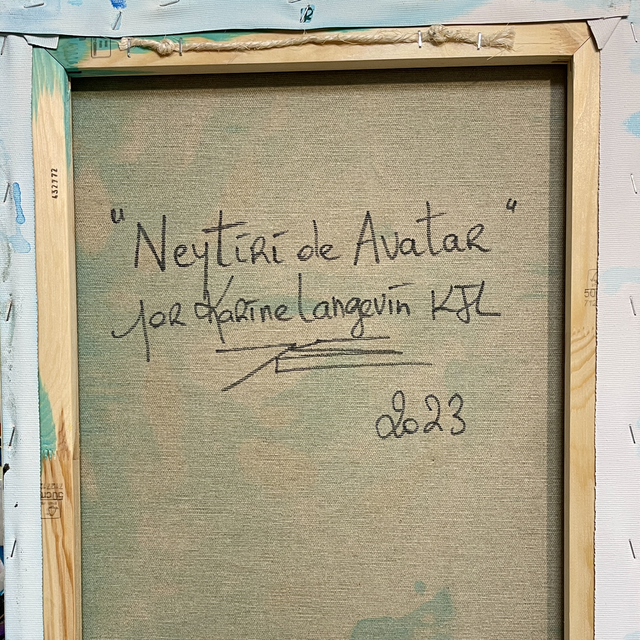 "Neytiri de Avatar"
por Karine Langevin KJL
2023
432772